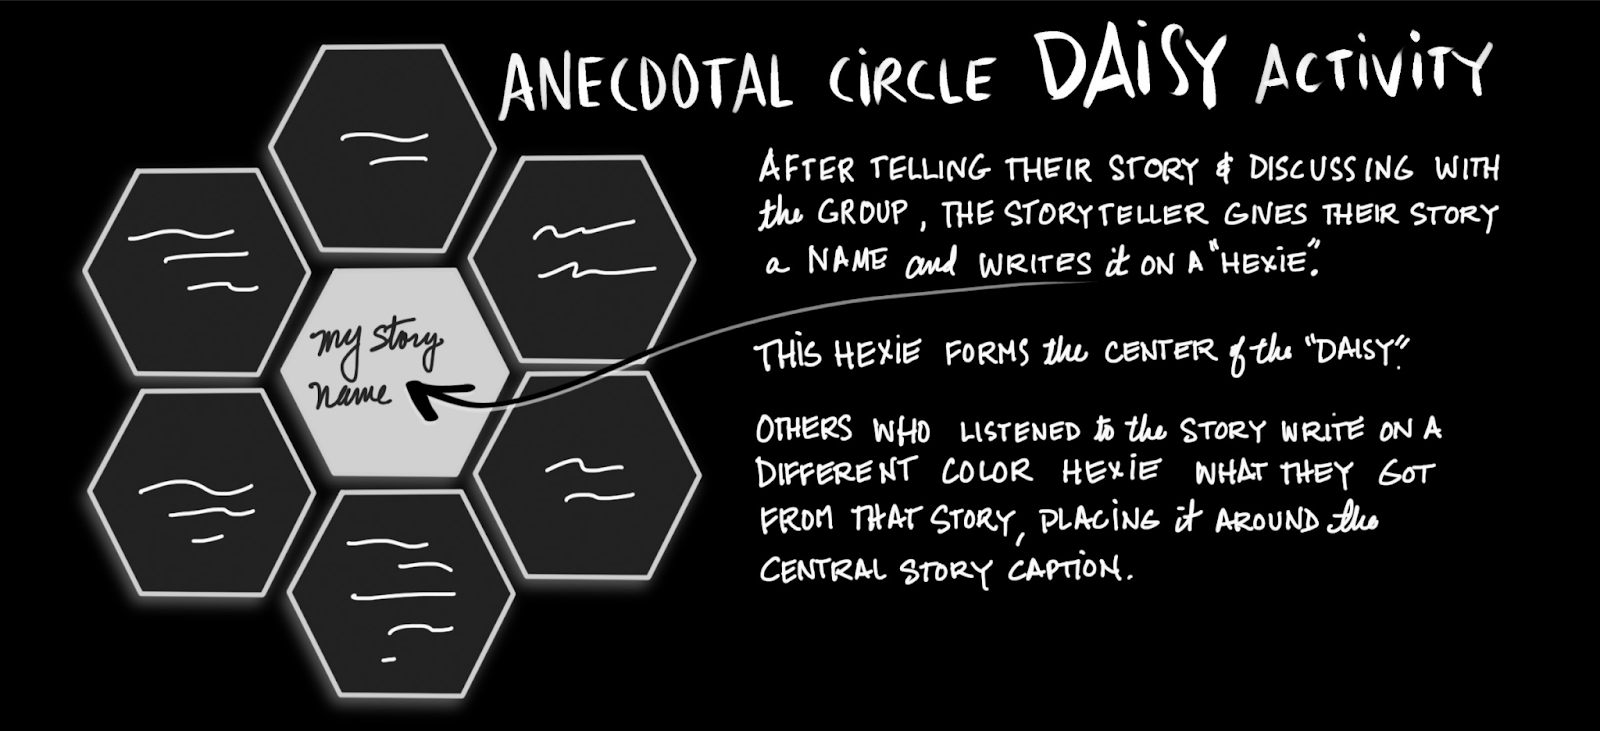 ANECDOTAL CiRCLE DAiSY ACTiViTY
AFTER TELLING THEIR STORY & DISCUSSING WITH
the GROUP, THE STORYTELLER GIVES THEIR STORY
a NAME and WRITES it ON A "HEXiE".
THiS HEXiE FORMS the CENTER of the "DAiSY."
OTHERS WHO LISTENED to the STORY WRITE ON A
DIFFERENT COLOR HEXIE WHAT THEY GOT
FROM THAT STORY, PLACiNG it AROUND the
CENTRAL STORY CAPTiON.
my story
name